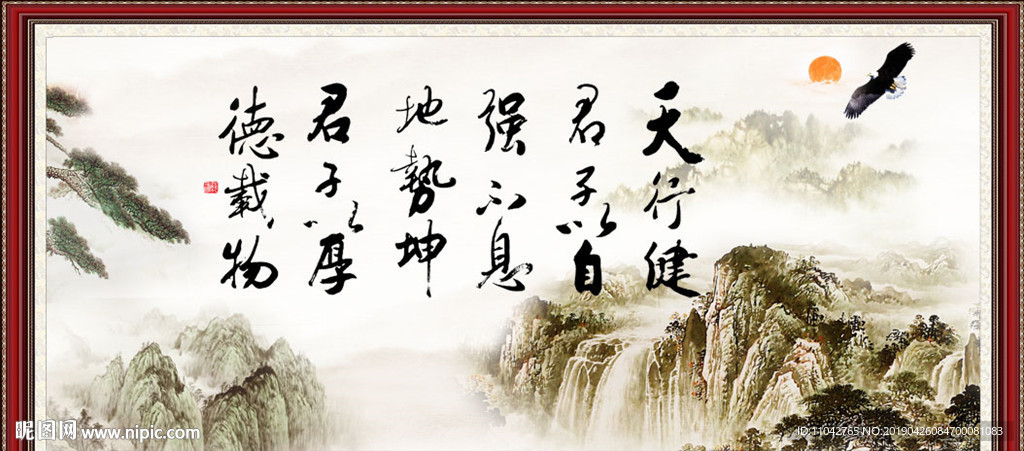 天行健
君子以自
强不息
地势坤
君子以厚
德载物
昵图网 www.nipic.com
ID:11042765 NO:20190426084700081083